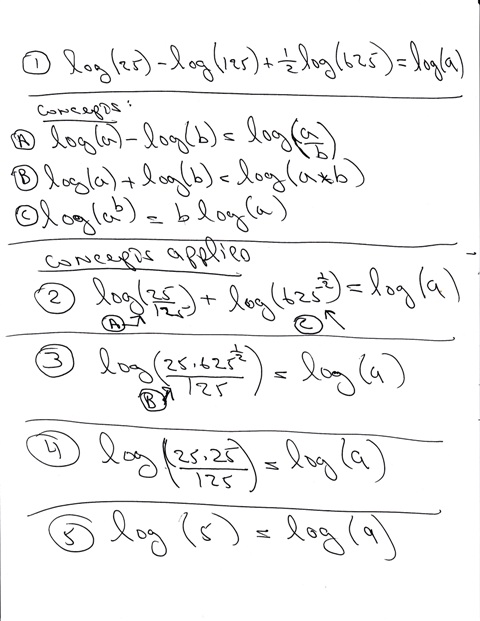 ① log(25) - log(125) + ½ log(625) = log(a)
concepts:
Ⓐ log(a) - log(b) = log(a/b)
Ⓑ log(a) + log(b) = log(a*b)
Ⓒ log(a^b) = b log(a)
concepts applied
② log(25/125) + log(625^½) = log(a)
Ⓐ Ⓒ
③ log(25·625^½/125) = log(a)
Ⓑ
④ log(25·25/125) = log(a)
⑤ log(5) = log(a)